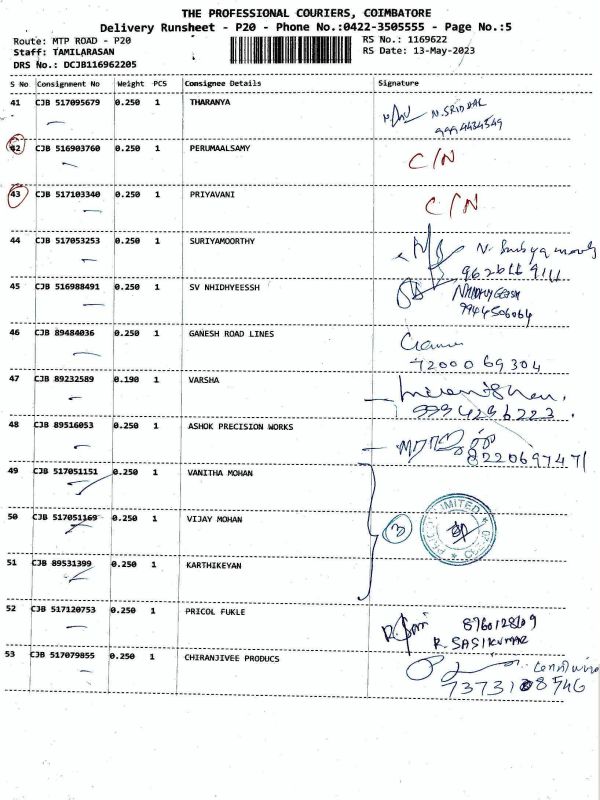 THE PROFESSIONAL COURIERS, COIMBATORE
Delivery Runsheet - P20 - Phone No.:0422-3505555 - Page No.:5
Route: MTP ROAD - P20 RS No.: 1169622
Staff: TAMILARASAN RS Date: 13-May-2023
DRS No.: DCJB116962205
S No Consignment No Weight PCS Consignee Details Signature
41 CJB 517095679 0.250 1 THARANYA N.SRIDDAL
9994434549
42 CJB 516903760 0.250 1 PERUMAALSAMY C/N
43 CJB 517103340 0.250 1 PRIYAVANI C/N
44 CJB 517053253 0.250 1 SURIYAMOORTHY
45 CJB 516988491 0.250 1 SV NHIDHYEESSH
9944506064
46 CJB 89484036 0.250 1 GANESH ROAD LINES
7200069304
47 CJB 89232589 0.190 1 VARSHA
9994296223.
48 CJB 89516053 0.250 1 ASHOK PRECISION WORKS
8220697471
49 CJB 517051151 0.250 1 VANITHA MOHAN
50 CJB 517051169 0.250 1 VIJAY MOHAN 3
51 CJB 89531399 0.250 1 KARTHIKEYAN
52 CJB 517120753 0.250 1 PRICOL FUKLE
R. SASIKUMAR
53 CJB 517079855 0.250 1 CHIRANJIVEE PRODUCS